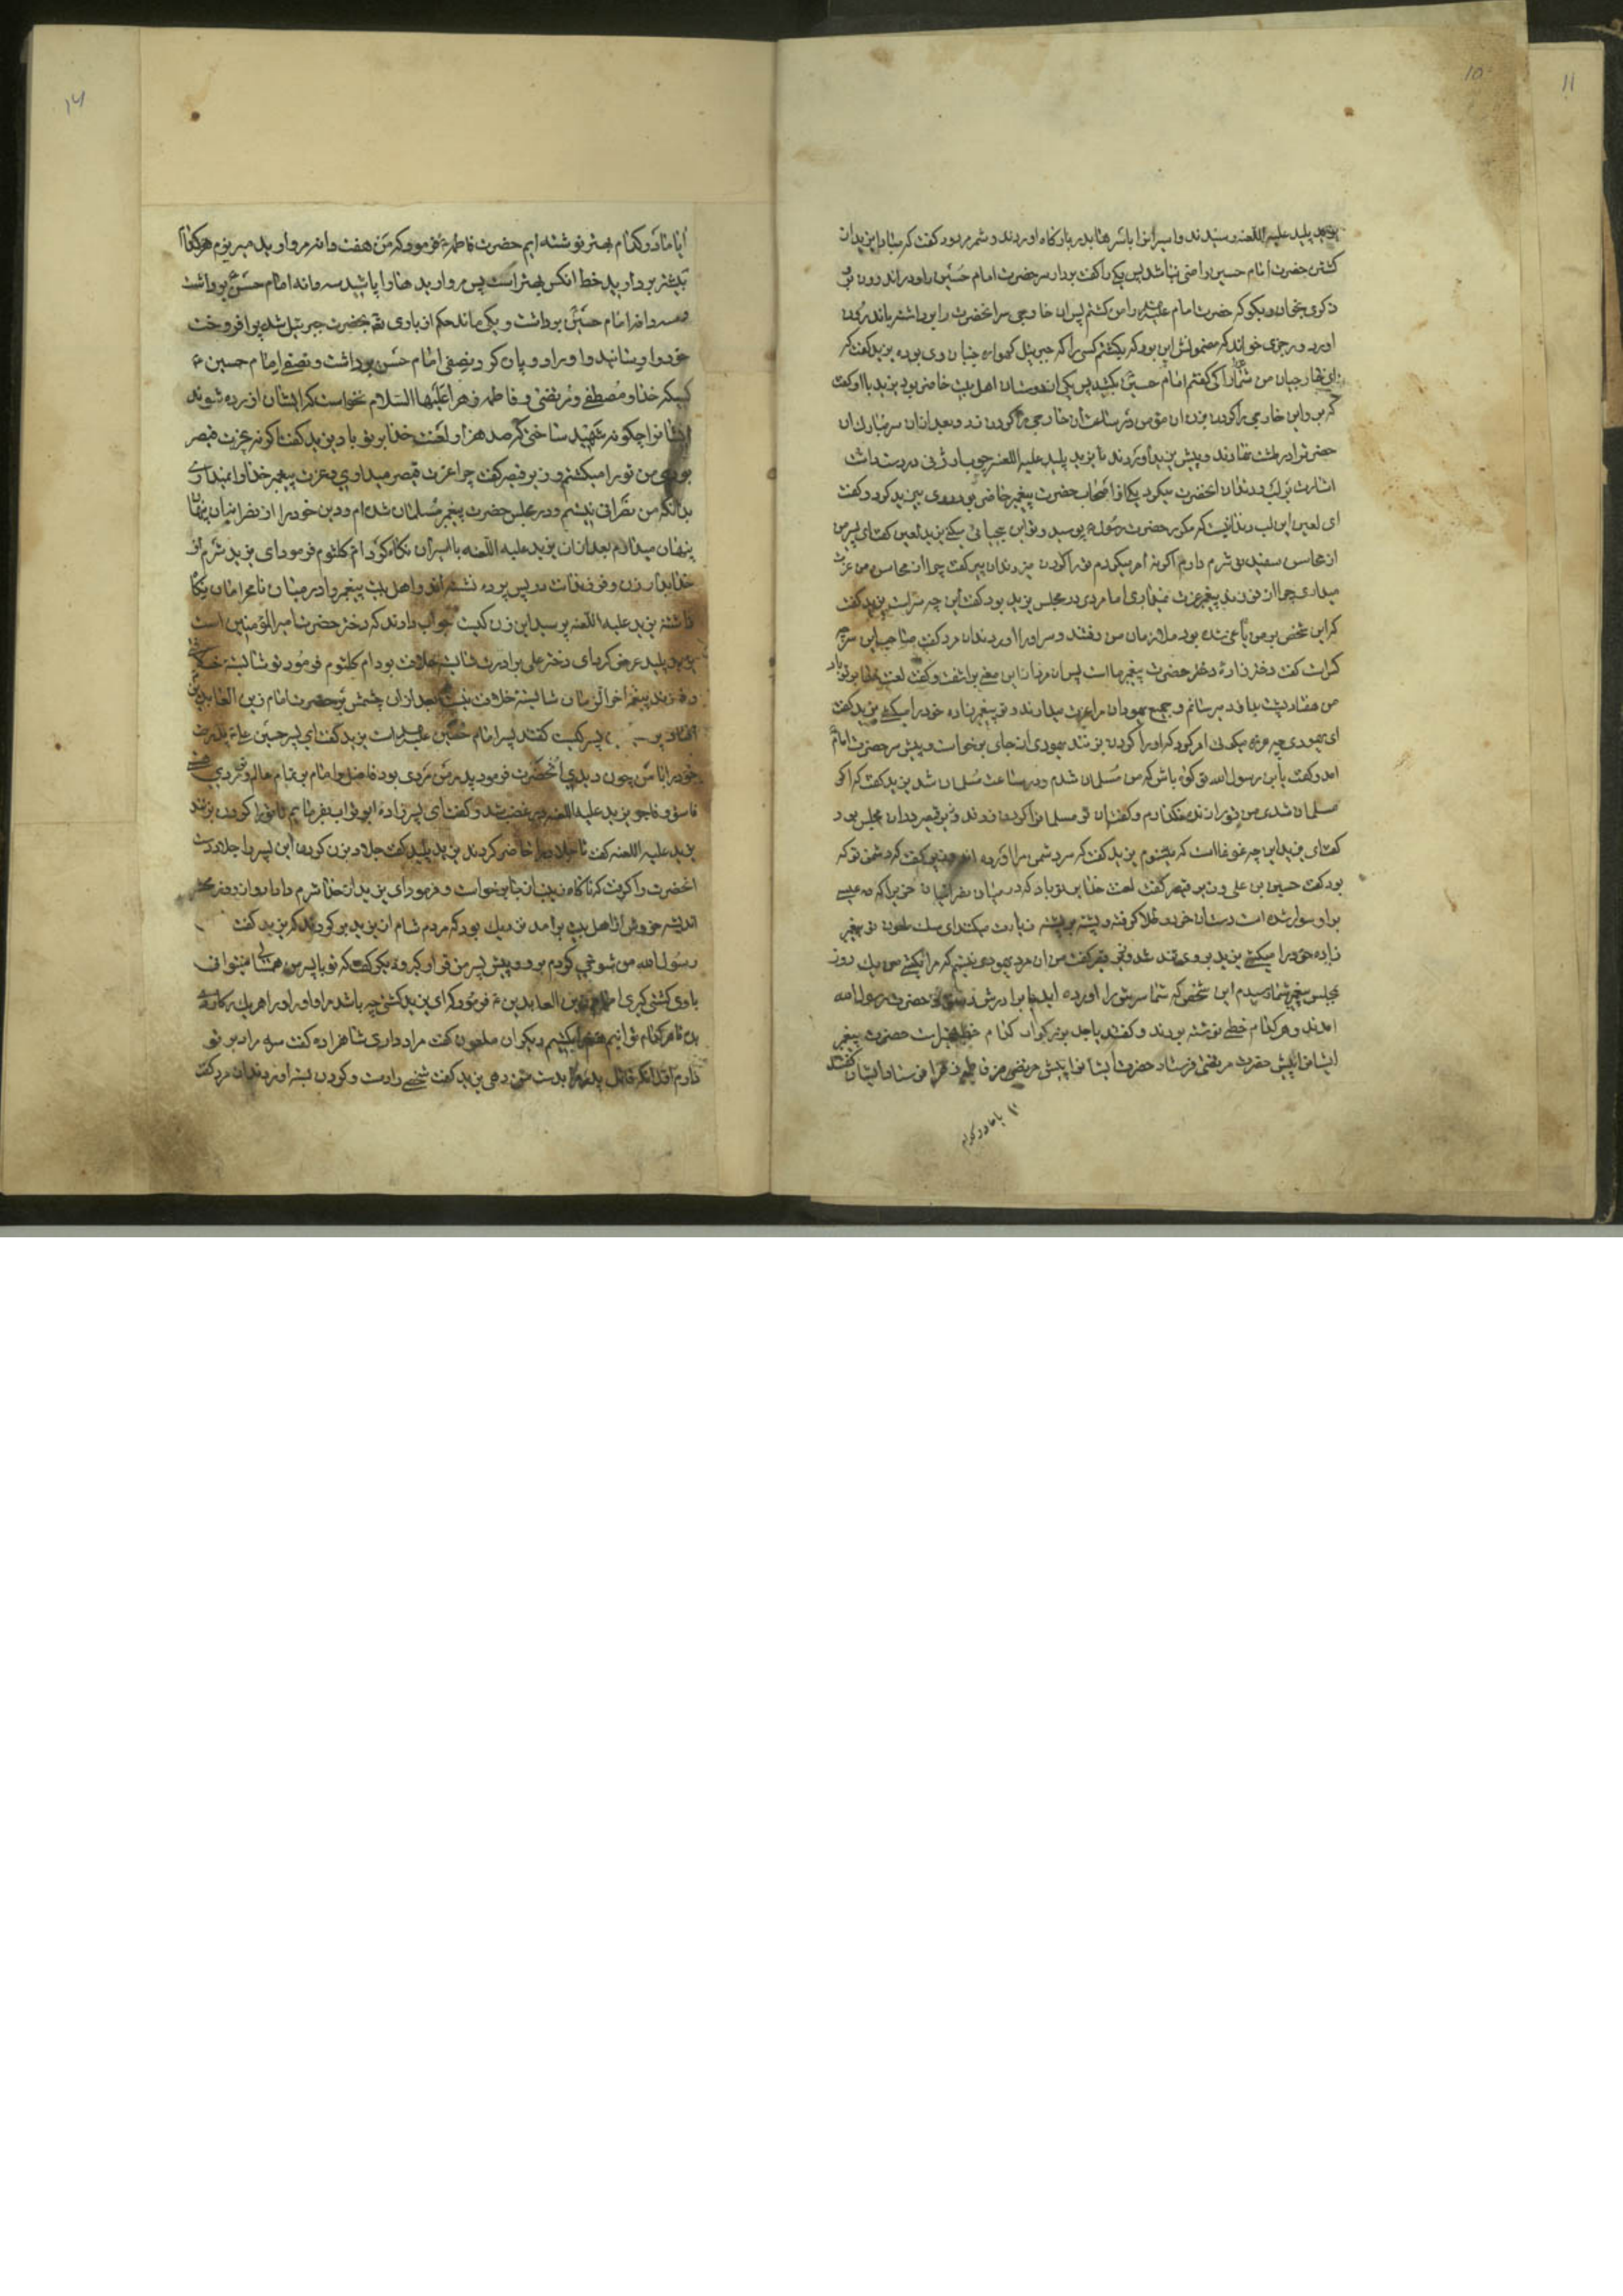 یزید پلید علیه اللعنه رسیدند و اسیرانرا با سرها بدر بارگاه اوردند و شمر مردود گفت که مبادا یزید از
کشتن حضرت امام حسین راضی نباشد پس یکی را گفت بردار سر حضرت امام حسین را و در اندرون بر
و بگو که حضرت امام علیه را من کشتم پس ان خارجی سر انحضرت را برداشته باندرون
اورد و رجزی خواند که مضمونش این بود که بکشتم کسی را که جبرئیل گهواره جنبان وی بوده یزید گفت که
من شما را کی گفتم امام حسین بکشید پس یکی از دوستان اهل بیت حاضر بود یزید با او گفت
که بر و این خارجی را گردن بزن ان مؤمن در ساعت ان خارجی را گردن زد و بعد از ان سر مبارک ان
حضرترا در طشت نهادند و پیش یزید آوردند تا یزید پلید علیه اللعنه چوبی در دست داشت
اشارت بر لب و دندان انحضرت میکرد یکی از اصحاب حضرت پیغمبر حاضر بود روی بیزید کرد و گفت
ای لعین این لب و دندانیست که مکرر حضرت رسول بوسید و تو این بیحیائی میکنی یزید لعین گفت ای پیر من
از محاسن سفید تو شرم دارم اگر نه امر میکردم تو را گردن میزدند ان پیر گفت چرا از محاسن من عزت
میداری چرا از فرزند پیغمبر عزت نمیداری اما مردی در مجلس یزید بود گفت این چه سر است یزید گفت
که این شخص بر من یاغی شده بود ملازمان من رفتند و سر او را اوردند ان مرد گفت صاحب این سر چه
کس است گفت دختر زادهٔ حضرت پیغمبر ما است پس ان مرد از این معنی برآشفت و گفت لعنت خدا بر تو باد
من هفتاد پشت بداود میرسانم و جمیع یهودان مرا عزت میدارند و تو پیغمبر زاده خود را میکشی یزید گفت
ای یهودی چه عربده میکنی امر کرد که او را گردن بزنند یهودی از جای برخواست و پیش سر حضرت امام
امد و گفت یا بن رسول الله تو گواه باش که من مسلمان شدم و در ساعت مسلمان شد یزید گفت که اگر
مسلمان شدی من تو را زنده نگذارم و گفت ان نو مسلمانرا گردن زدند وزیر قیصر در ان مجلس بود
گفت ای یزید این چه غوغا است که میشنوم یزید گفت که سر دشمن مرا اورده اند وزیر گفت که دشمن تو که
بود گفت حسین بن علی وزیر قیصر گفت لعنت خدا بر تو باد که در میان نصرانیان خریرا که عیسی
بر او سوار شده است دستان خر در طلا گرفته و پشت بر پشت زیارت میکنند ای سگ ملعون تو پیغمبر
زاده خود را میکشی یزید بر وی تند شد وزیر قیصر گفت من ان مرد یهودی نیستم که مرا بکشی من یک روز
بمجلس پیغمبر شما رسیدم این شخص که شما سرش را اورده اید با برادرش نزد حضرت رسول الله
امدند و هر کدام خطی نوشته بودند و گفتند یا جد بزرگوار کدام خط بهتر است حضرت پیغمبر
ایشانرا پیش حضرت مرتضی فرستاد حضرت ایشانرا پیش فاطمه زهرا فرستاد ایشان گفتند
ایا مادر کدام بهتر نوشته ایم حضرت فاطمه فرمود که من هفت دانه مروارید میریزم هر کدام
بیشتر بردارید خط انکس بهتر است پس مرواریدها را پاشید سه دانه امام حسن برداشت
و سه دانه امام حسین برداشت و یکی ماند حکم از باری تعالی بحضرت جبرئیل شد پر افروخت
خود را رسانید و او را دو پاره کرد و نصفی امام حسن برداشت و نصفی امام حسین
کسیکه خدا و مصطفی و مرتضی و فاطمه زهرا علیها السلام نخواست که ایشان ازرده شوند
ایشانرا چگونه شهید ساختی که صد هزار لعنت خدا بر تو باد یزید گفت اگر نه عزت قیصر
بودی من تو را میکشتم وزیر قیصر گفت چرا عزت قیصر میداری و عزت پیغمبر خدا را نمیداری
بدانکه من نصرانی نیستم و در مجلس حضرت پیغمبر مسلمان شده ام و دین خود را از نصرانیان
پنهان میدارم بعد از ان یزید علیه اللعنه با اسیران نگاه کرد ام کلثوم فرمود ای یزید شرم از
خدا بدار زن و فرزندانت در پس پرده نشسته اند و اهل بیت پیغمبر را در میان نامحرمان نگاه
داشته یزید علیه اللعنه پرسید این زن کیست جواب دادند که دختر حضرت امیر المؤمنین است
یزید پلید عرض کرد ای دختر علی برادرت شایسته خلافت بود ام کلثوم فرمود تو شایسته
و فرزند پیغمبر اخر الزمان شایسته خلافت نیست بعد از ان چشمش بر حضرت امام زین العابدین
افتاد پسر کیست گفتند پسر امام حسین علیه است یزید گفت ای پسر حسین
خود را با من چون دیدی انحضرت فرمود پدر من مردی بود فاضل و امام بر تمام عالم و تو مردی هستی
فاسق و فاجر یزید علیه اللعنه در غضب شد و گفت ای پسر زادهٔ ابو تراب بفرمایم تا تو را گردن بزنند
یزید علیه اللعنه گفت تا جلاد را حاضر کردند یزید پلید گفت جلاد بزن گردن این پسر را جلاد دست
انحضرت را گرفت که ناگاه زینب از جا برخواست و فرمود ای یزید از خدا شرم دار و از روز محشر
اندیشه خروش از اهل بیت برامد نزدیک بود که مردم شام از یزید برگردند که یزید گفت
رسول الله من شوخی کردم برو و پیش پسر من قرار گیر و دیگر گفت که تو با پسر من میتوانی
با وی کشتی گیری امام زین العابدین فرمود که ای یزید کشتی چه باشد مرا و او را هر یک کاردی
بده تا هر کدام توانیم بکشیم دیگر ان ملعون گفت مراد داری شاهزاده گفت سه مراد بر تو
دارم اول انکه قاتل پدر مرا بدست من دهی یزید گفت شخصی را دست و گردن بسته اوردند ان مرد گفت